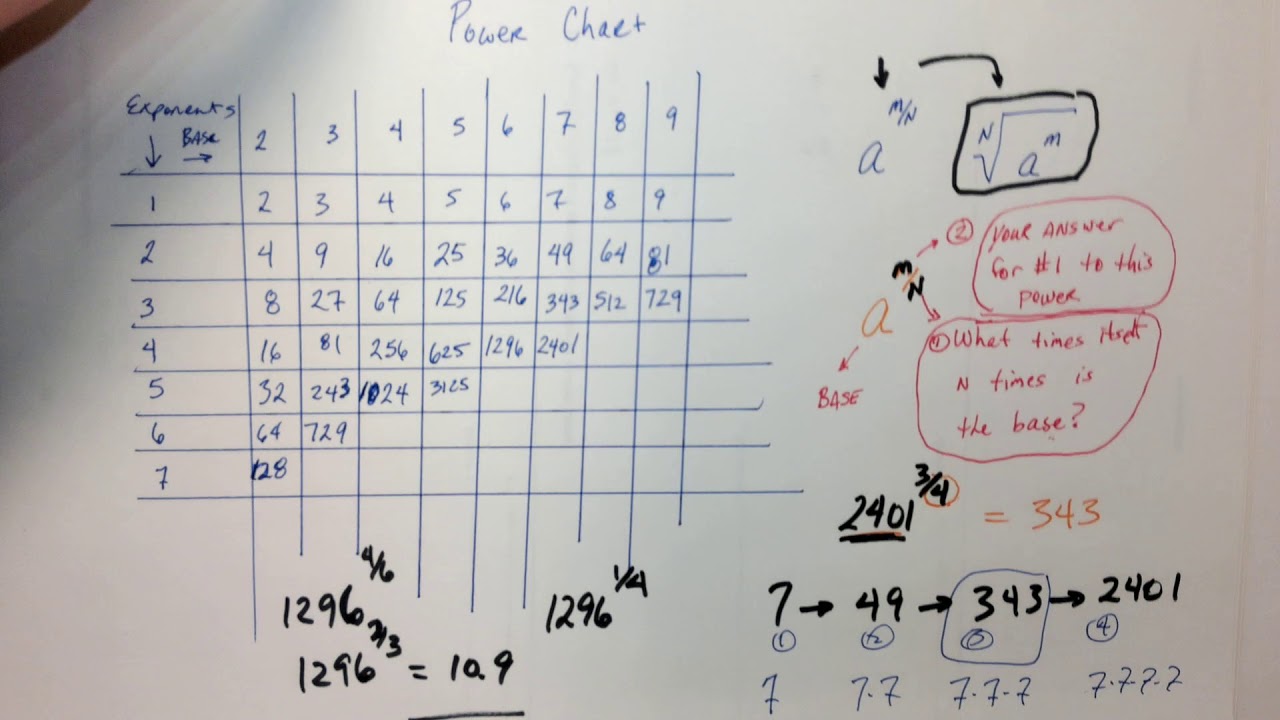 Power Chart
Exponents BASE → 2 3 4 5 6 7 8 9
↓
1 2 3 4 5 6 7 8 9
2 4 9 16 25 36 49 64 81
3 8 27 64 125 216 343 512 729
4 16 81 256 625 1296 2401
5 32 243 1024 3125
6 64 729
7 128
1296^4/6
1296^2/3 = 10.9
1296^1/4
a^m/N
N√a^m
a^m/N
BASE
② Your ANSWER
for #1 to this
power
① What times itself
N times is
the base?
2401^3/4 = 343
7 → 49 → 343 → 2401
① ② ③ ④
7 7·7 7·7·7 7·7·7·7